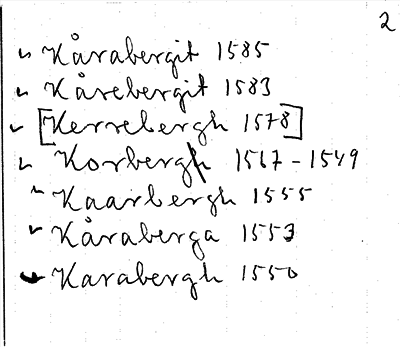 2
Kårabergit 1585
Kårebergit 1583
[Kerrebergh 1578]
Korbergh 1567-1549
Kaarbergh 1555
Kåraberga 1553
Karabergh 1550